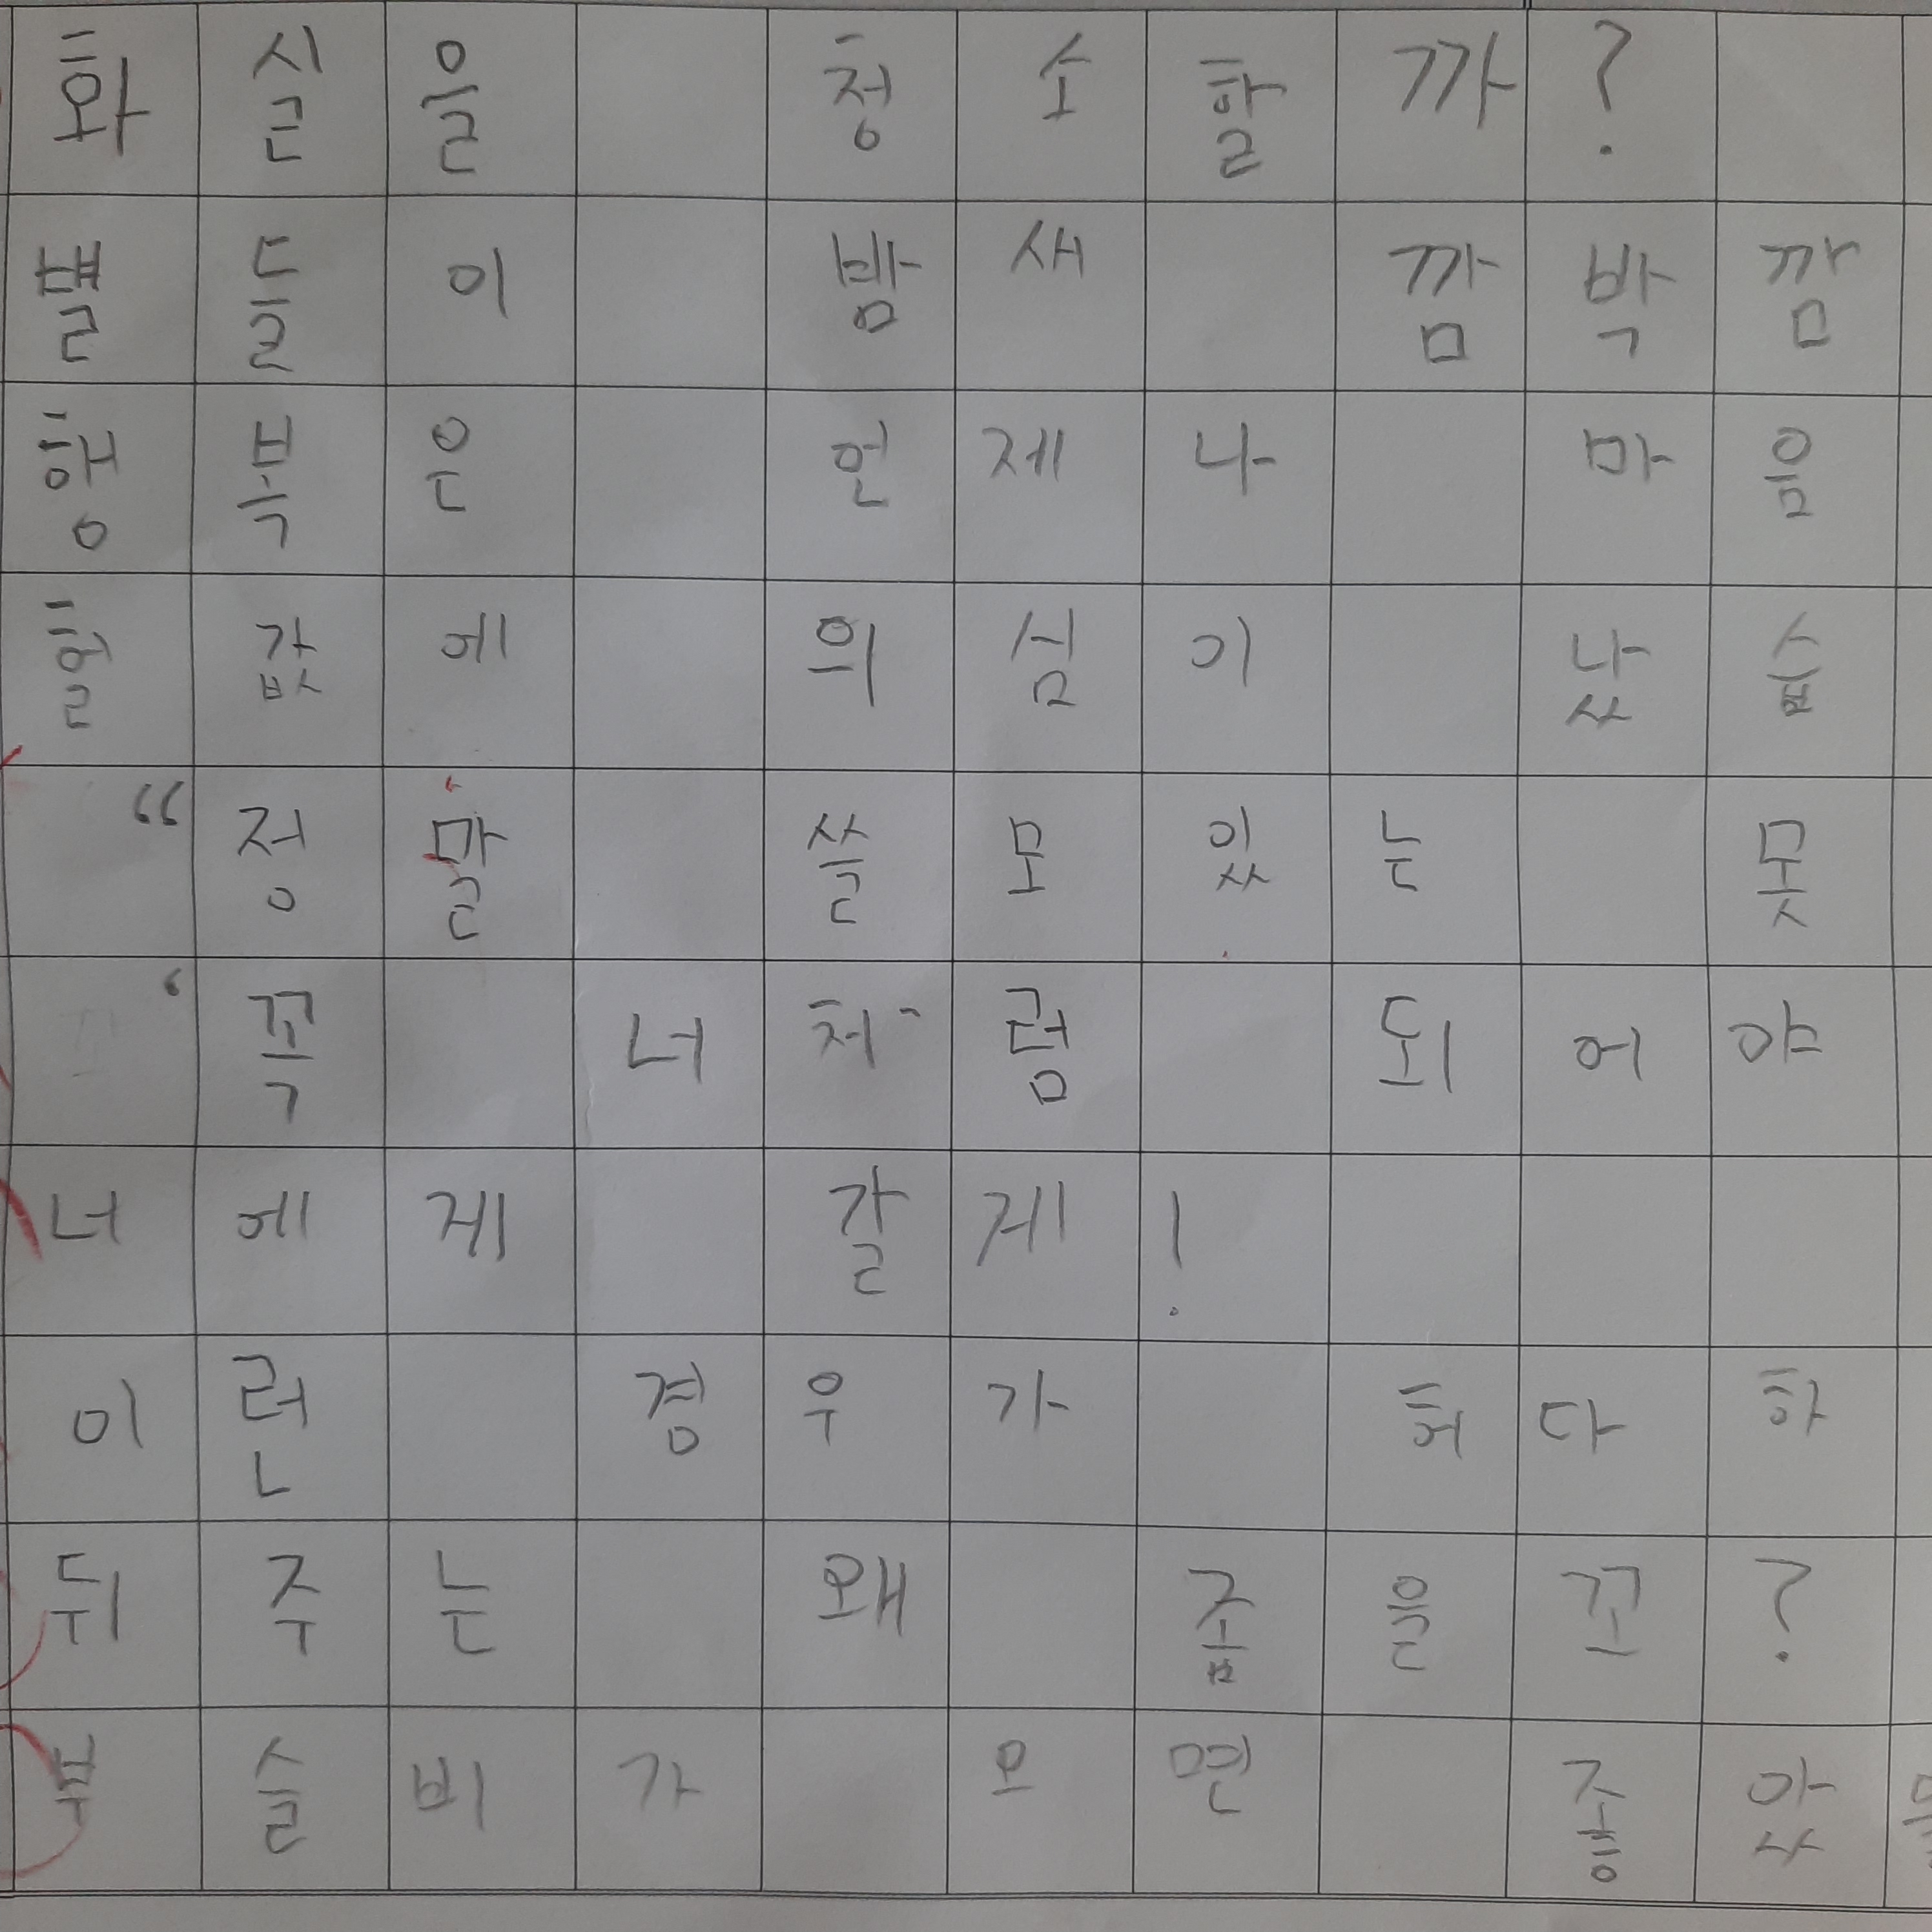 화실을 청소할까?
별들이 밤새 깜박깜
행복은 언제나 마음
헐값에 의심이 났습
“정말 쓸모있는 못
‘꼭 너처럼 되어야
너에게 갈게!
이런 경우가 허다하
뒤주는 왜 좁을꼬?
부슬비가 오면 좋았